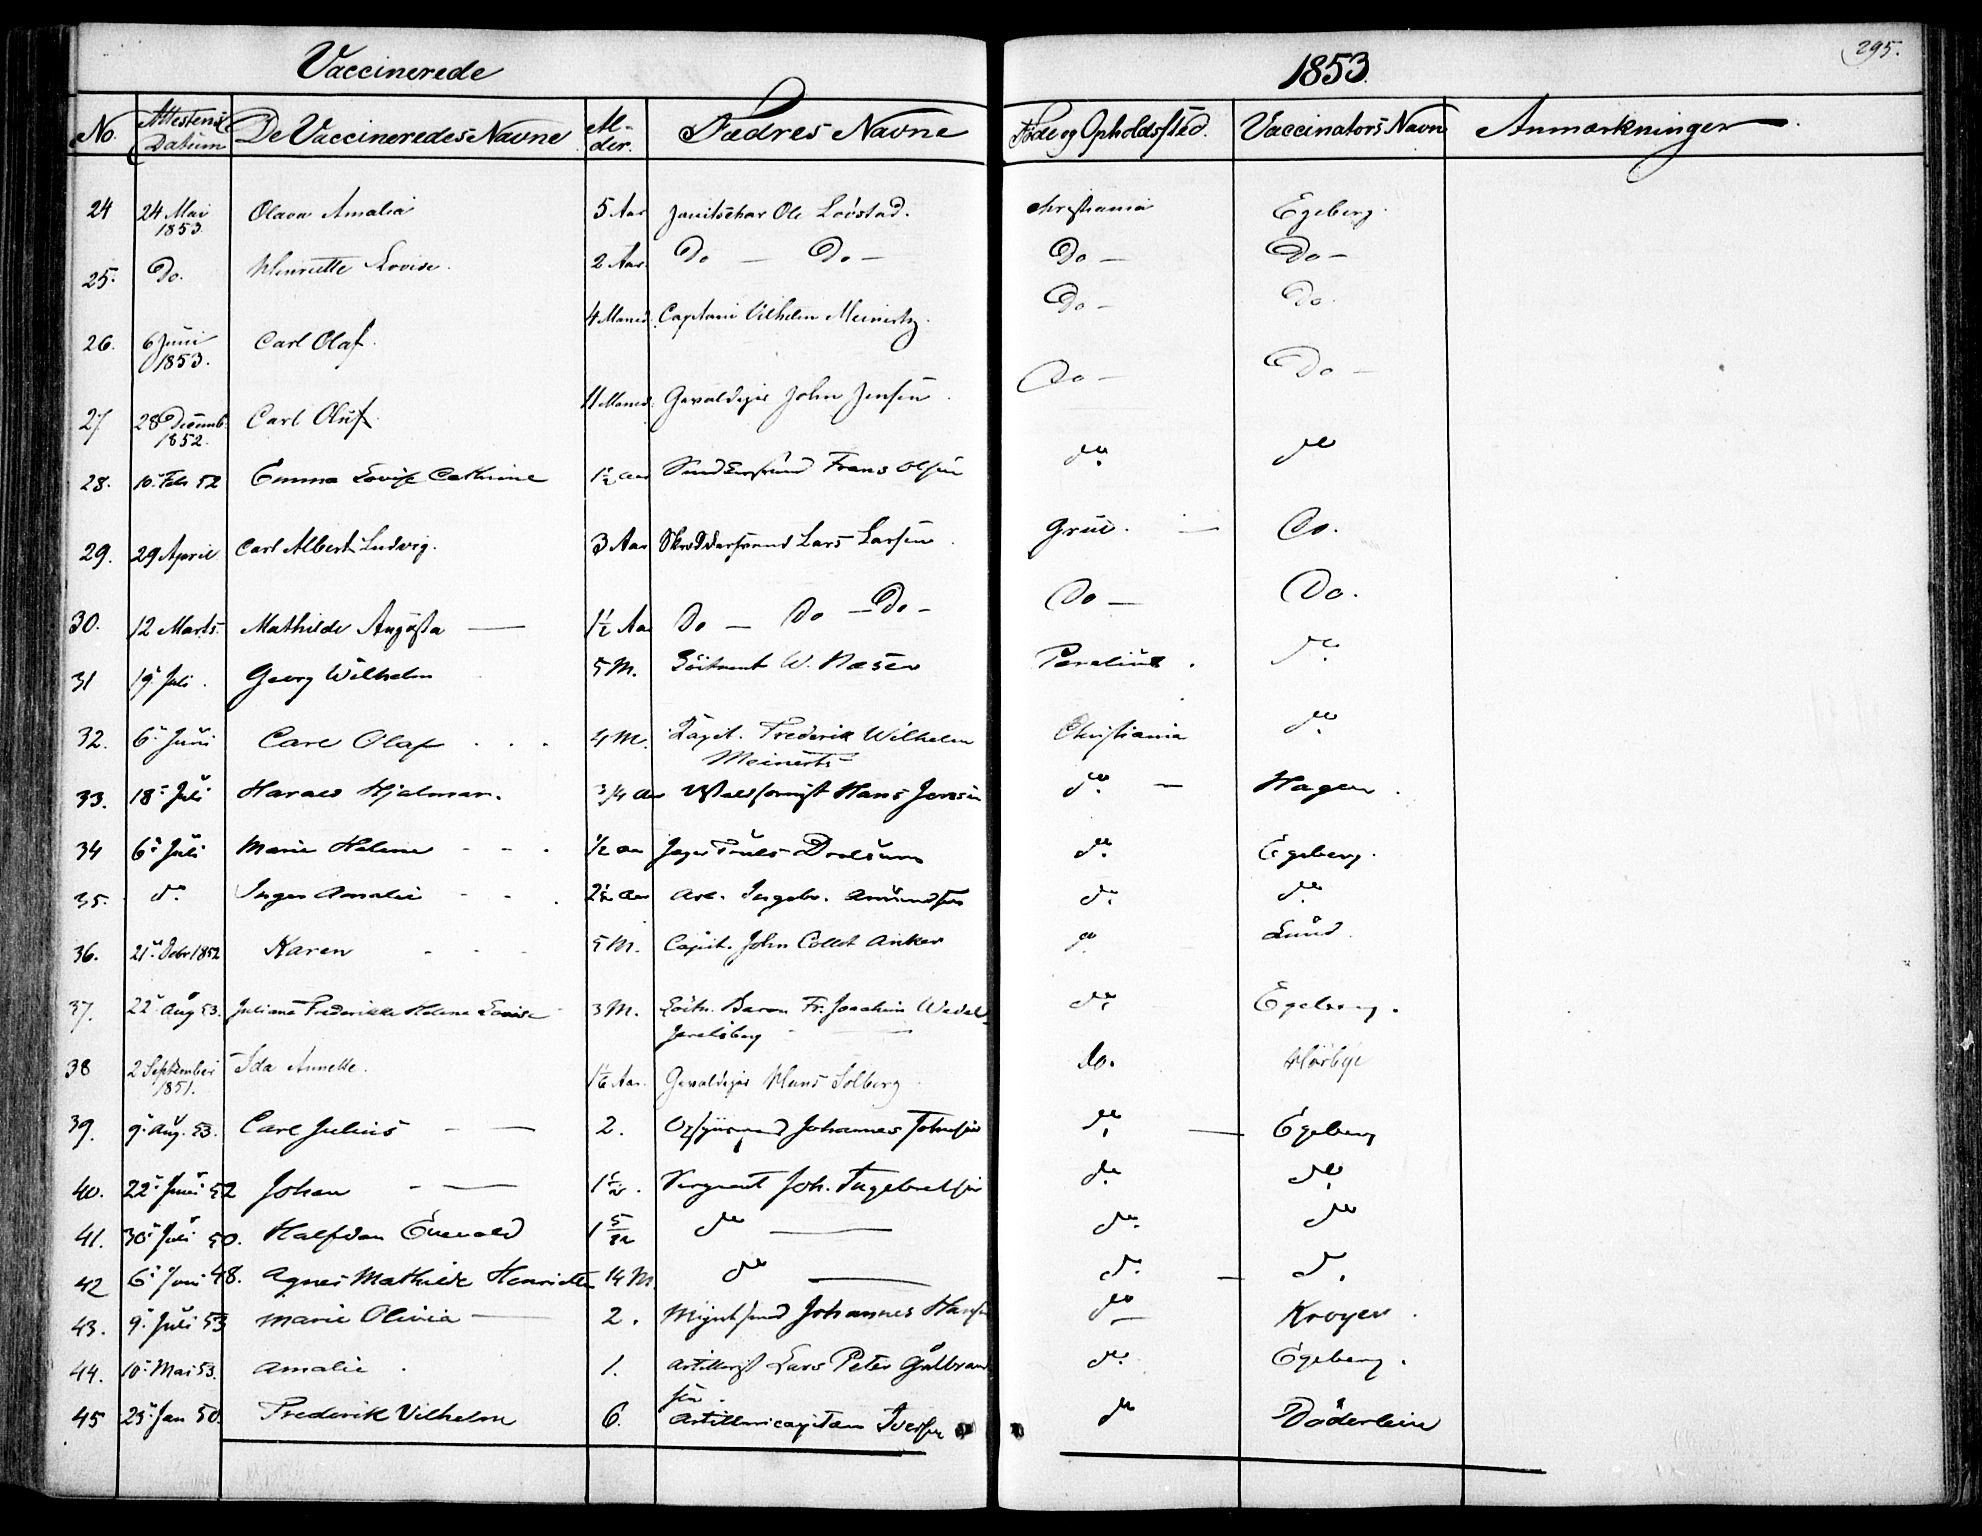 Vaccinerede 1853. 295.
No. Attestens Datum De Vaccineredes Navne Al-der. Fædres Navne Føde og Opholdssted. Vaccinators Navn Anmærkninger
24 24 Mai 1853. Olava Amalia 5 Aar Janitschar Ole Lovstad. Christiania Egeberg.
25. Do. Henriette Lovise. 2 Aar. Do — Do — Do — Do —
26. 6 Juni 1853. Carl Olaf. 4 Maned. Capitain Vilhelm Meinertz. Do — Do.
27 28 Decemb. 1852. Carl Oluf. 11 Maned. Gevaldiger John Jensen. Do — Do —
28. 10. Feb 52 Emma Lovise Cathrine 1½ Aar Frans Olsen do. do
29. 29 April Carl Albert Ludvig. 3 Aar Skræddersvend Lars Larsen. Grue. — Do.
30. 12 Marts. Mathilde Augusta — 1½ Aar Do — Do — Do — Do — Do.
31 19. Juli. Georg Wilhelm 5 M. Løitnant W. Do.
32. 6. Juni Carl Olaf . . . 4 M. Capit. Frederik Wilhelm Meinerts Christiania do.
33. 18. Juli Harald Hjalmar. 3/4 Aar Hans Jensen do. — Hagen.
34 6. Juli Marie Helene - - . ½ Aar do. Egeberg.
35. do. Inger Amalie - - . 2½ Aar Arb. Ingebr. Amundsen do. do.
36. 21. Octbr 1852 Karen - - - 5 M. Capit. John Collet Anker do Lund.
37. 22. Aug 53. Juliane Frederikke Helene Louise 3 M. Løitn. Baron Fr. Joachim Wedel-
Jarelsberg do. Egeberg.
38 2 September 1851. Ida Annette. 1⅙ Aar. Gevaldiger Hans Solberg. do. Hørbye
39. 9. Aug. 53. Carl Julius — — 2. Johannes Johnsen do. — Egeberg
40. 22. Juni 52 Johan - — Sergeant Joh. Ingebretsen do. do.
41. 30. Juli 50. Halfdan Evevald 1 5/12 do — do. do
42 6. Juni 48. Agnes Mathilde Henriette 14 M. do — do. — do.
43. 9. Juli 53 Marie Olivia — 2. Johannes Hansen do — Krøyer.
44. 10. Mai 53. Amalie. 1. Artillerist Lars Peter Gulbrand-
sen. do. Egeberg.
45 25. Jan 50. Frederik Vilhelm 6. Artilericapitain Iversen do Døderlein